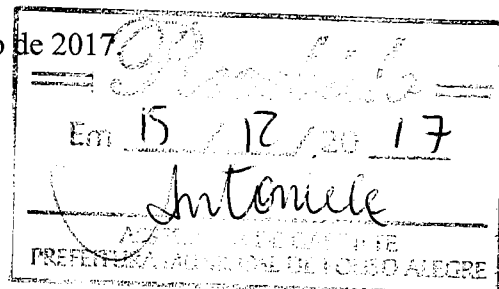 o de 2017.
Recebido
Em 15 / 12 / 20 17
Antoniele
PREFEITURA MUNICIPAL DE POUSO ALEGRE